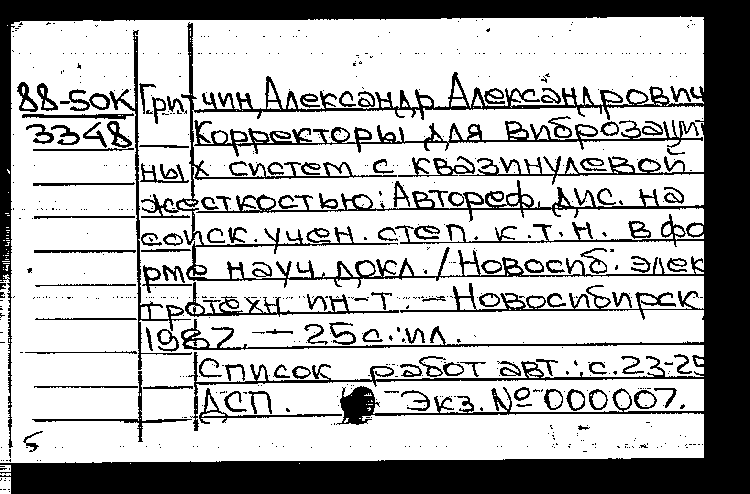 88-50К Гритчин, Александр Александрович
3348 Корректоры для виброзащит
ных систем с квазинулевой
жесткостью: Автореф. дис. на
соиск. учен. степ. к.т.н. в фо
рме науч. докл. / Новосиб. элек
тротехн. ин-т. — Новосибирск,
1987. — 25 с.: ил.
Список работ авт.: с. 23-25
ДСП. Экз. № 000007.
5